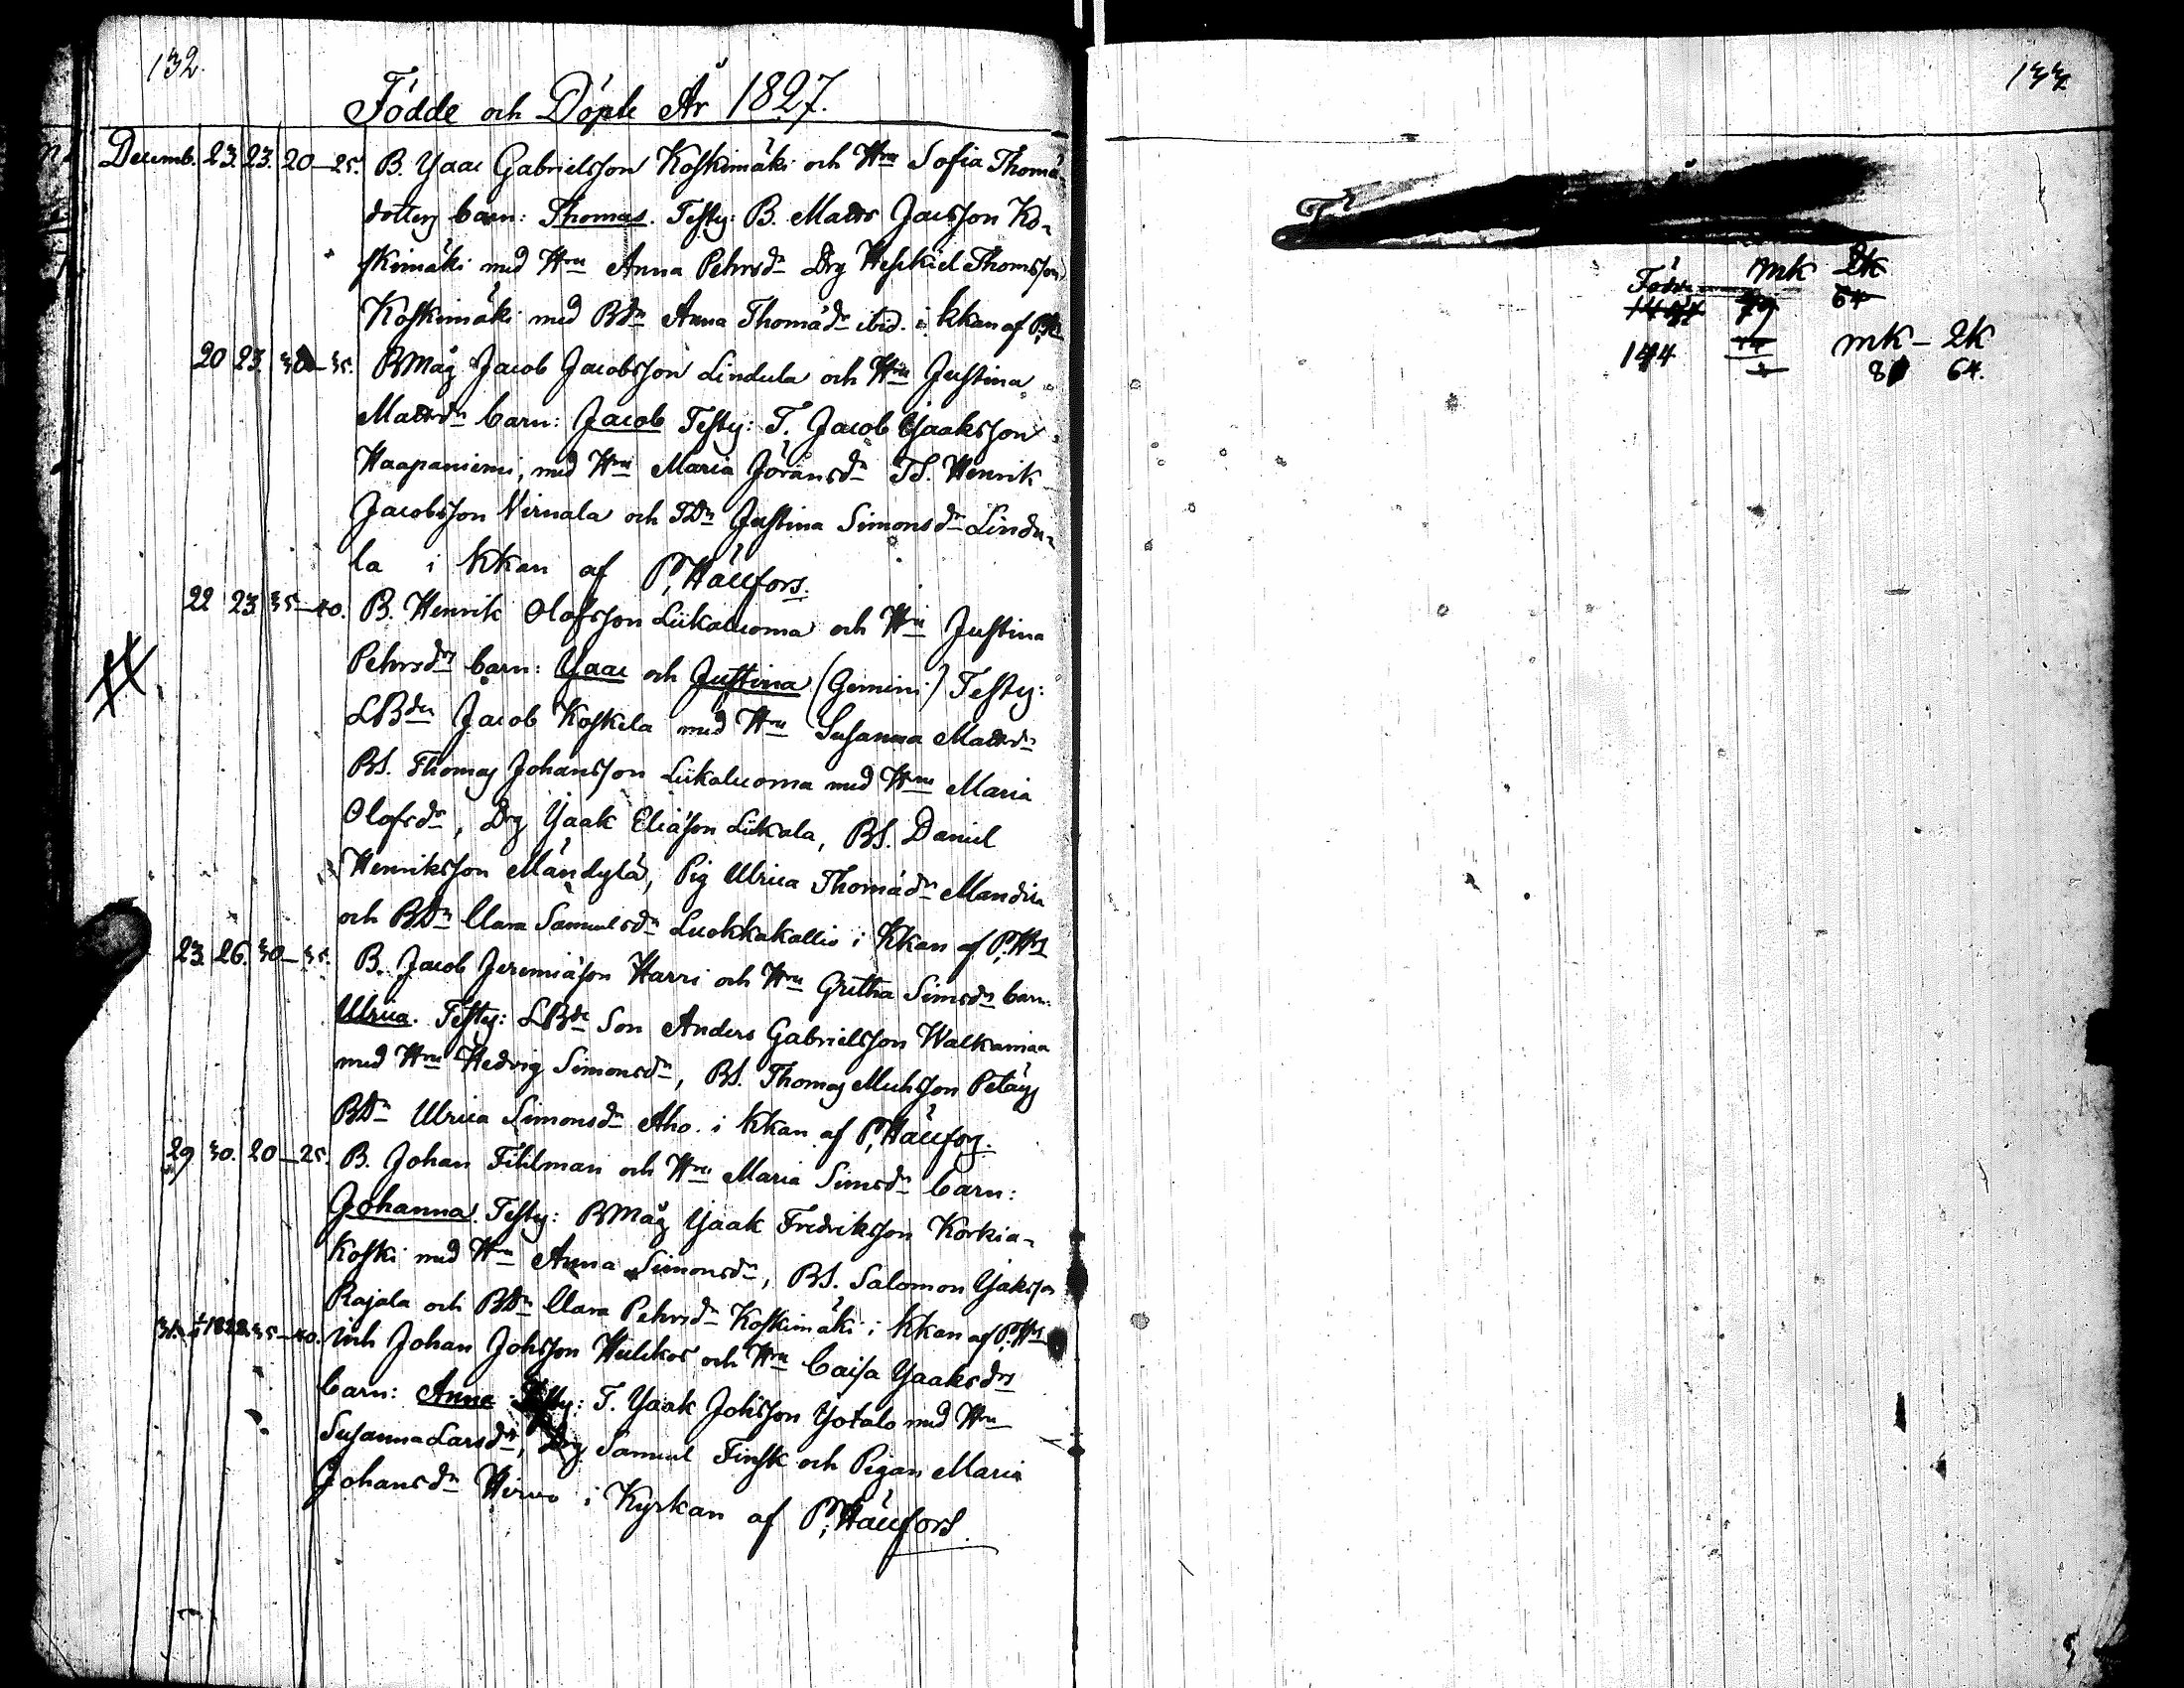 132.
Födde och Döpte År 1827.
Decemb. 23. 23. 20–25. B. Ysaac Gabrielsson Koskimäki och Hru Sofia Thomä
dotters barn: Thomas. Testes: B. Matts Jacsson Ko-
skimäki med Hru Anna Pehrsdr Drg Heskiel Thomsson
Koskimäki med BDr Anna Thomädr ibid. i kkan af
20 23. 30–35. BMåg Jacob Jacobsson Lindula och Hru Justina
Mattsdr barn: Jacob Testes: T. Jacob Ysaaksson
Haapaniemi, med Hru Maria Jöransdr TS. Henrik
Jacobsson Nirnala och TDr Justina Simonsdr Lindu-
la i kkan af P. Hällfors.
22 23 35–40. B. Henrik Olofsson Liikaluoma och Hru Justina
Pehrsdrs barn: Ysaac och Justina (Gemini) Testes:
LBdn Jacob Koskela med Hru Susanna Mattsdr
BS. Thomas Johansson Liikaluoma med Hru Maria
Olofsdr, Drg Ysaak Eliäson Liikala, BS. Daniel
Henriksson Mändylä, Pig Ulrica Thomädr Mandila
och BDr Clara Samuelsdr Luokkakallio i Kkan af P. Hls
23. 26. 30–35. B. Jacob Jeremiäson Harri och Hru Gretha Simsdrs barn:
Ulrica. Testes: LBde Son Anders Gabrielsson Walkamaa
med Hru Hedvig Simonsdr, BS. Thomas Michsson Petäys
BDr Ulrica Simonsdr Aho. i kkan af P. Hällfors.
29 30. 20–25. B. Johan Fihlman och Hru Maria Simsdr barn:
Johanna. Testes: BMåg Ysaak Fredriksson Korkia-
koski med Hru Anna Simonsdr, BS. Salomon Ysaksson
Rajala och BDr Clara Pehrsdr Koskimäki i kkan af P. Hls
31. 1/1 1828. 35–40. Inh Johan Johsson Hulckos och Hru Caisa Ysaaksdrs
barn: Anna Testes: T. Ysaak Johsson Yotalo med Hru
Susanna Larsdr, Drg Samuel Finsk och Pigan Maria
Johansdr Hirvo i Kyrkan af P. Hällfors.
133
mk 2k
64
144 mk – 2k
8 64.